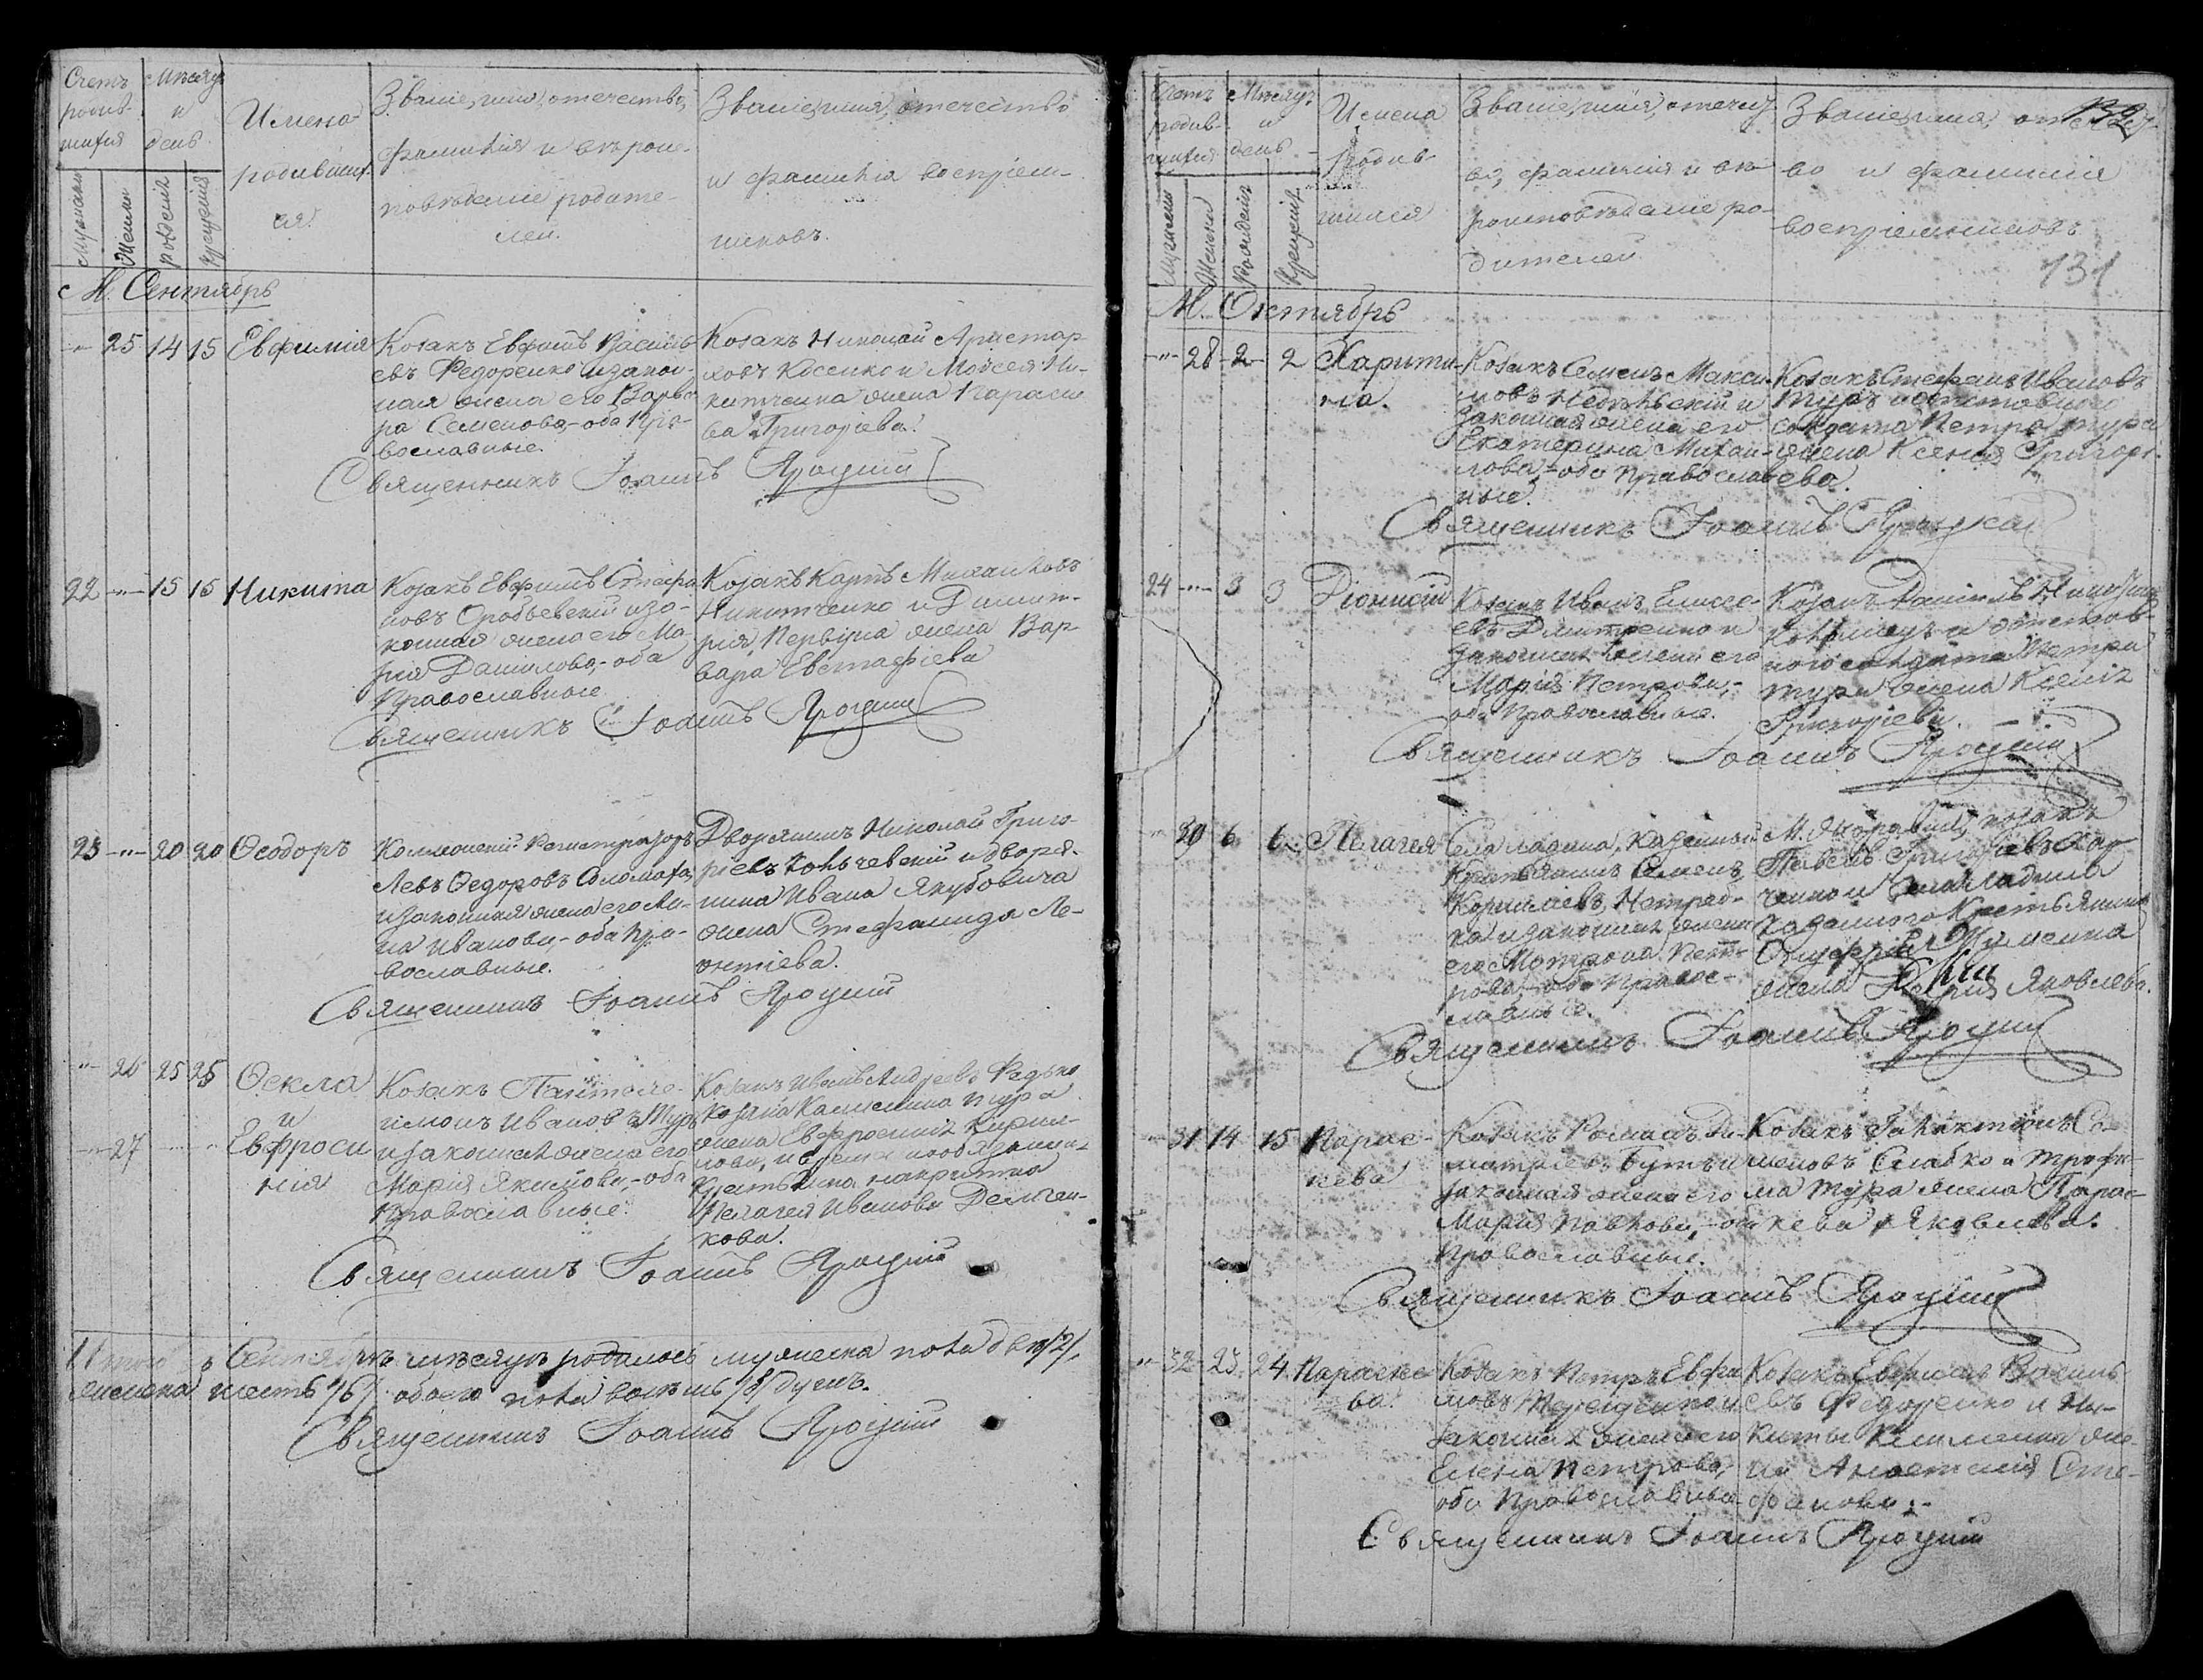 Счетъ родив-шихся
Мѣсяцъ и день
Имена родивших-ся.
Званіе, имя, отечество, фамилія и вѣроис-повѣданіе родите-лей.
Званіе, имя, отечество и фамилія воспріем-никовъ.
Мужеска
Женски
рожденія
крещенія
М. Сентябрь
-"- 25 14 15 Евфимія
Козакъ Евфимъ Василь-
евъ Федоренко и закон-
ная жена его Варва-
ра Семенова,- оба Пра-
вославные.
Козакъ Николай Аристар-
ховъ Косенко и Моисея Ни-
китченка жена Параске-
ва Григоріева.
Священникъ Іоаннъ Яроцкій
22 -"- 15 15 Никита
Козакъ Евфимъ Стефа-
новъ Оробьевскій и за-
конная жена его Ма-
рія Данилова,- оба
Православные
Козакъ Карпъ Михайловъ
Никитченко и Димит-
рія Первіуна жена Вар-
вара Евстафіева
Священникъ Іоаннъ Яроцкій
23 -"- 20 20 Ѳеодоръ
Коллежскій Регистраторъ
Левъ Ѳедоровъ Соломаха,
и законная жена его Ан-
на Иванова,- оба Пра-
вославные.
Дворянинъ Николай Григо-
ріевъ Кольчевскій и дворя-
нина Ивана Якубовича
жена Стефанида Ле-
онтіева.
Священникъ Іоаннъ Яроцкій
-"- 26 25 25 Ѳекла
и
-"- 27 Евфроси
нія
Козакъ Пантеле-
имонъ Ивановъ Туръ
и законная жена его
Марія Якимова,- оба
Православные.
Козакъ Иванъ Андреевъ Федько
Козака Калиника Тура
жена Евфросинія Кирил-
лова, и временнообязанна-
Крестьянка
Пелагея Иванова Демчен-
кова.
Священникъ Іоаннъ Яроцкій
Итого въ Сентябрѣ мѣсяцѣ родилось мужеска пола два /2/,
женска шесть /6/ обоего пола восемь /8/ душъ.
Священникъ Іоаннъ Яроцкій
Счетъ родив-шихся
Мѣсяцъ и день
Имена родив-шихся
Званіе, имя, отечест-во, фамилія и вѣ-роисповѣданіе ро-дителей
Званіе, имя, отечест-во и фамилія воспріемниковъ
132
131
Мужески
Женски
Рожденія
Крещенія
М. Октябрь
-"- 28 2 2 Харити-
на.
Козакъ Семенъ Макси-
мовъ и
законная жена его
Екатерина Михай-
лова,- оба Православ-
ные.
Козакъ Стефанъ Ивановъ
Туръ и отставного
солдата Петра Тура
жена Ксенія Григорі-
ева.
Священникъ Іоаннъ Яроцкій
24 -"- 3 3 Діонисій
Козакъ Иванъ Елисе-
евъ Дмитренко и
законная жена его
Марія Петрова,-
оба Православные.
Козакъ Даніилъ
и отстав-
ного солдата Петра
Тура жена Ксенія
Григоріева.
Священникъ Іоаннъ Яроцкій
-"- 30 6 6 Пелагея
Села Ладина, Казенный
Крестьянинъ Семенъ
Корниліевъ
и законная жена
его Матрона Пет-
рова,- оба Правос-
лавные.
козакъ
Павелъ Григоріевъ
и Села Ладина
Казеннаго Крестьянина
Онуфрія
жена Дарія Яковлева.
Священникъ Іоаннъ Яроцкій
-"- 31 14 15 Парас-
кева
Козакъ Романъ Ди-
митріевъ Бутъ и
законная жена его
Марія Павлова,- оба
Православные.
Козакъ Галактіонъ Се-
меновъ Слабко и Трофи-
ма Тура жена Парас-
кева Яковлева.
Священникъ Іоаннъ Яроцкій
-"- 32 23 24 Параске-
ва.
Козакъ Петръ Евфи-
мовъ Терещенко и
законная жена его
Елена Петрова,
оба Православные
Козакъ Евфимъ Василь-
евъ Федоренко и Ни-
киты Клименка же-
на Анастасія Сте-
фанова.-
Священникъ Іоаннъ Яроцкій